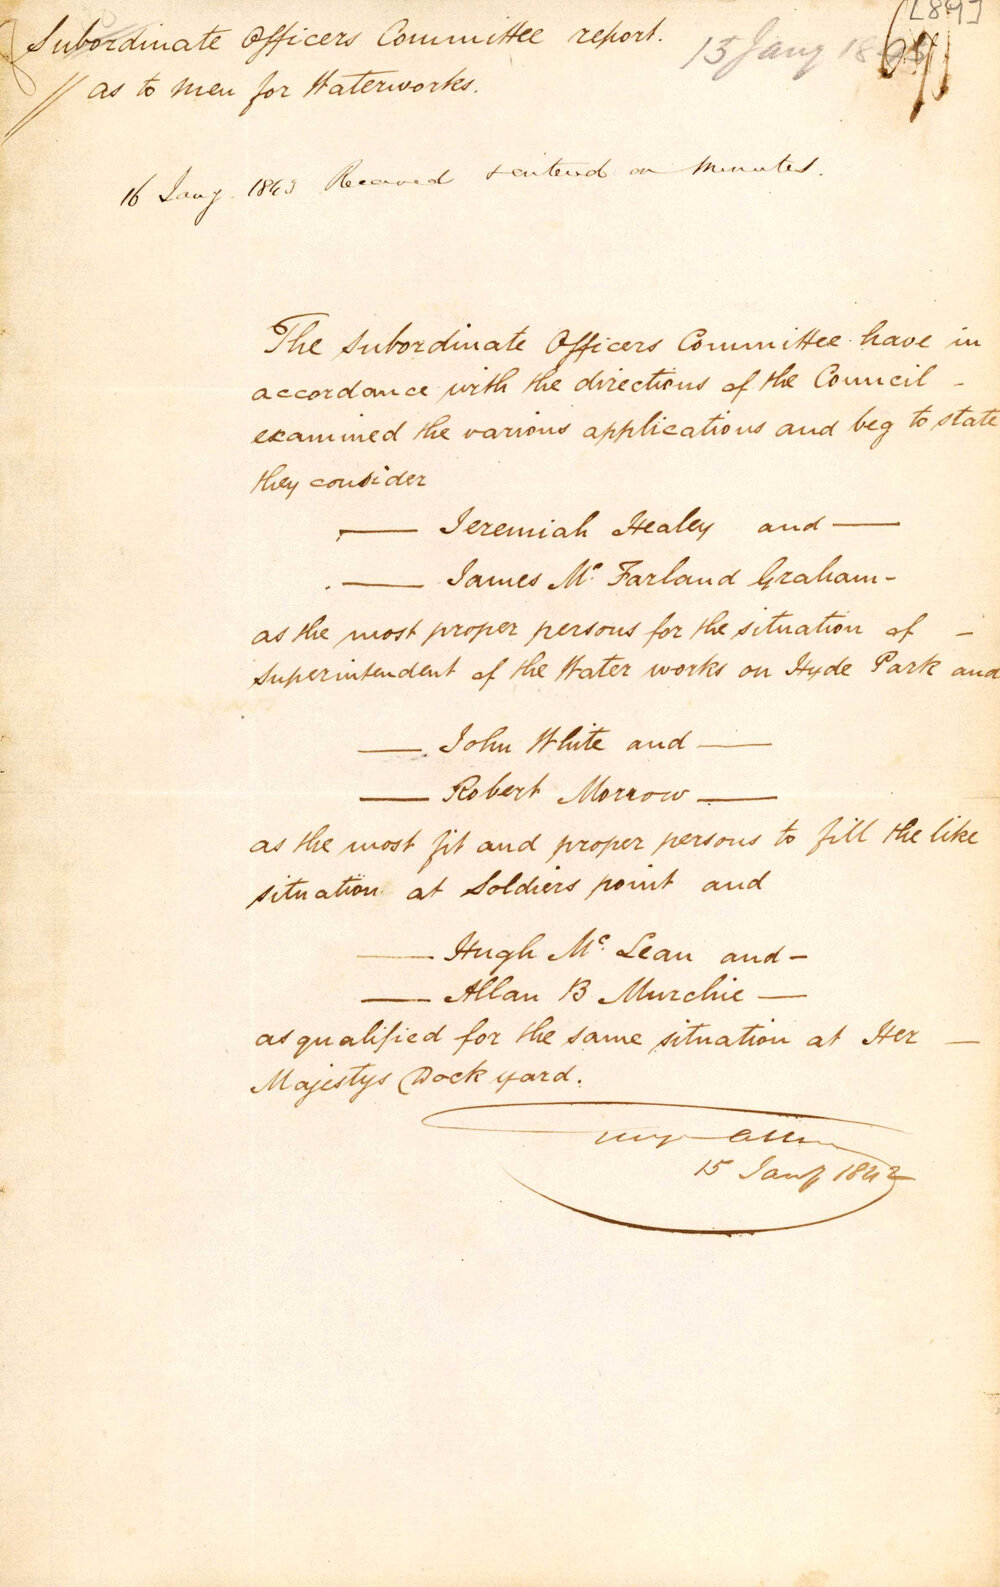 [89]
Subordinate Officers Committee report.
15 Jany 1843
// as to men for Waterworks.
16 Jany. 1843 Received & entered on Minutes.
The Subordinate Officers Committee have in
accordance with the directions of the Council -
examined the various applications and beg to state
they consider
— Jeremiah Healey and —
— James Mc. Farland Graham -
as the most proper persons for the situation of -
Superintendent of the Water works on Hyde Park and
— John White and —
— Robert Morrow —
as the most fit and proper persons to fill the like
situation at Soldiers point and
— Hugh Mc. Lean and -
— Allan B Murchie —
as qualified for the same situation at Her —
Majestys Dock yard.
15 Jany 1843